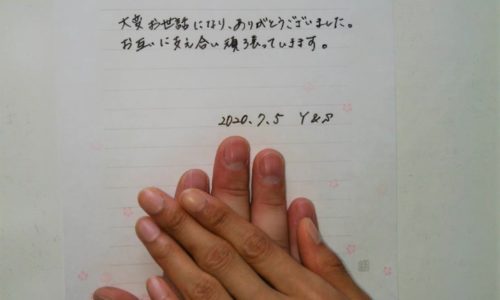 大変お世話になり、ありがとうございました。
お互いに支え合い頑張っていきます。
2020.7.5 Y&S